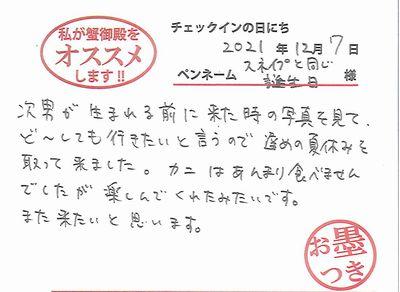 私が蟹御殿を
オススメ
します!!
チェックインの日にち
2021年12月7日
ペンネーム スネイプと同じ誕生日 様
次男が生まれる前に来た時の写真を見て、
ど〜しても行きたいと言うので遅めの夏休みを
取って来ました。カニはあんまり食べません
でしたが楽しんでくれたみたいです。
また来たいと思います。
お墨
つき